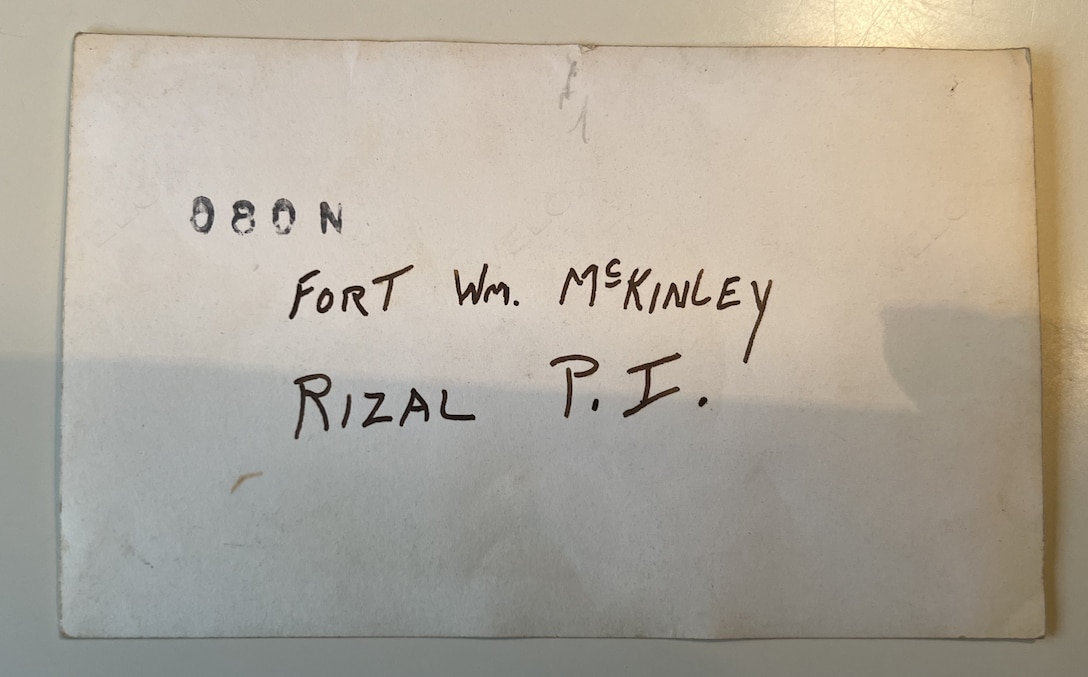 080N
FORT Wm. McKINLEY
RIZAL P.I.